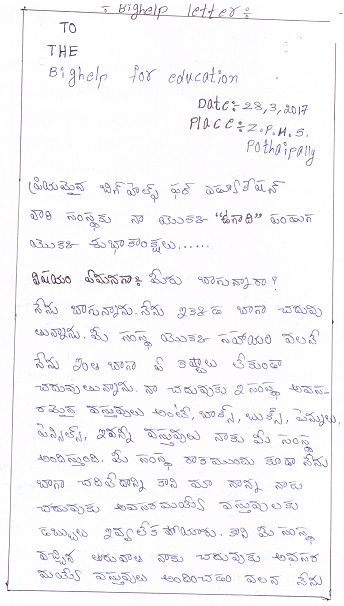 ÷ Bighelp letter ÷
TO
THE
Bighelp for education
Date:- 28,3,2017
Place:- Z.P.H.S.
Pothaipally
ప్రియమైన బిగ్‌హెల్ప్ ఫర్ ఎడ్యుకేషన్
వారి సంస్థకు నా యొక్క "ఉగాది" పండుగ
యొక్క శుభాకాంక్షలు......
విషయం ఏమనగా: మీరు బాగున్నారా?
నేను బాగున్నాను. నేను ఇక్కడ బాగా చదువు
తున్నాను. మీ సంస్థ యొక్క సహాయం వలనే
నేను ఇంత బాగా ఏ కష్టాలు లేకుండా
చదువుతున్నాను. నా చదువుకు ఈ సంస్థ అవస-
రమైన వస్తువులు అంటే, బాక్స్, బుక్స్, పెన్నులు,
పెన్సిల్స్, ఇవన్నీ వస్తువులు నాకు మీ సంస్థ
అందిస్తుంది. మీ సంస్థ రాకముందు కూడా నేను
బాగా చదివేదాన్ని కాని మా నాన్న నాకు
చదువుకు అవసరమయ్యే వస్తువులకు
డబ్బులు ఇవ్వలేక పోయారు. కాని మీ సంస్థ
వచ్చిన తరువాత నాకు చదువుకు అవసర
మయ్యే వస్తువులు అందించడం వలన నేను